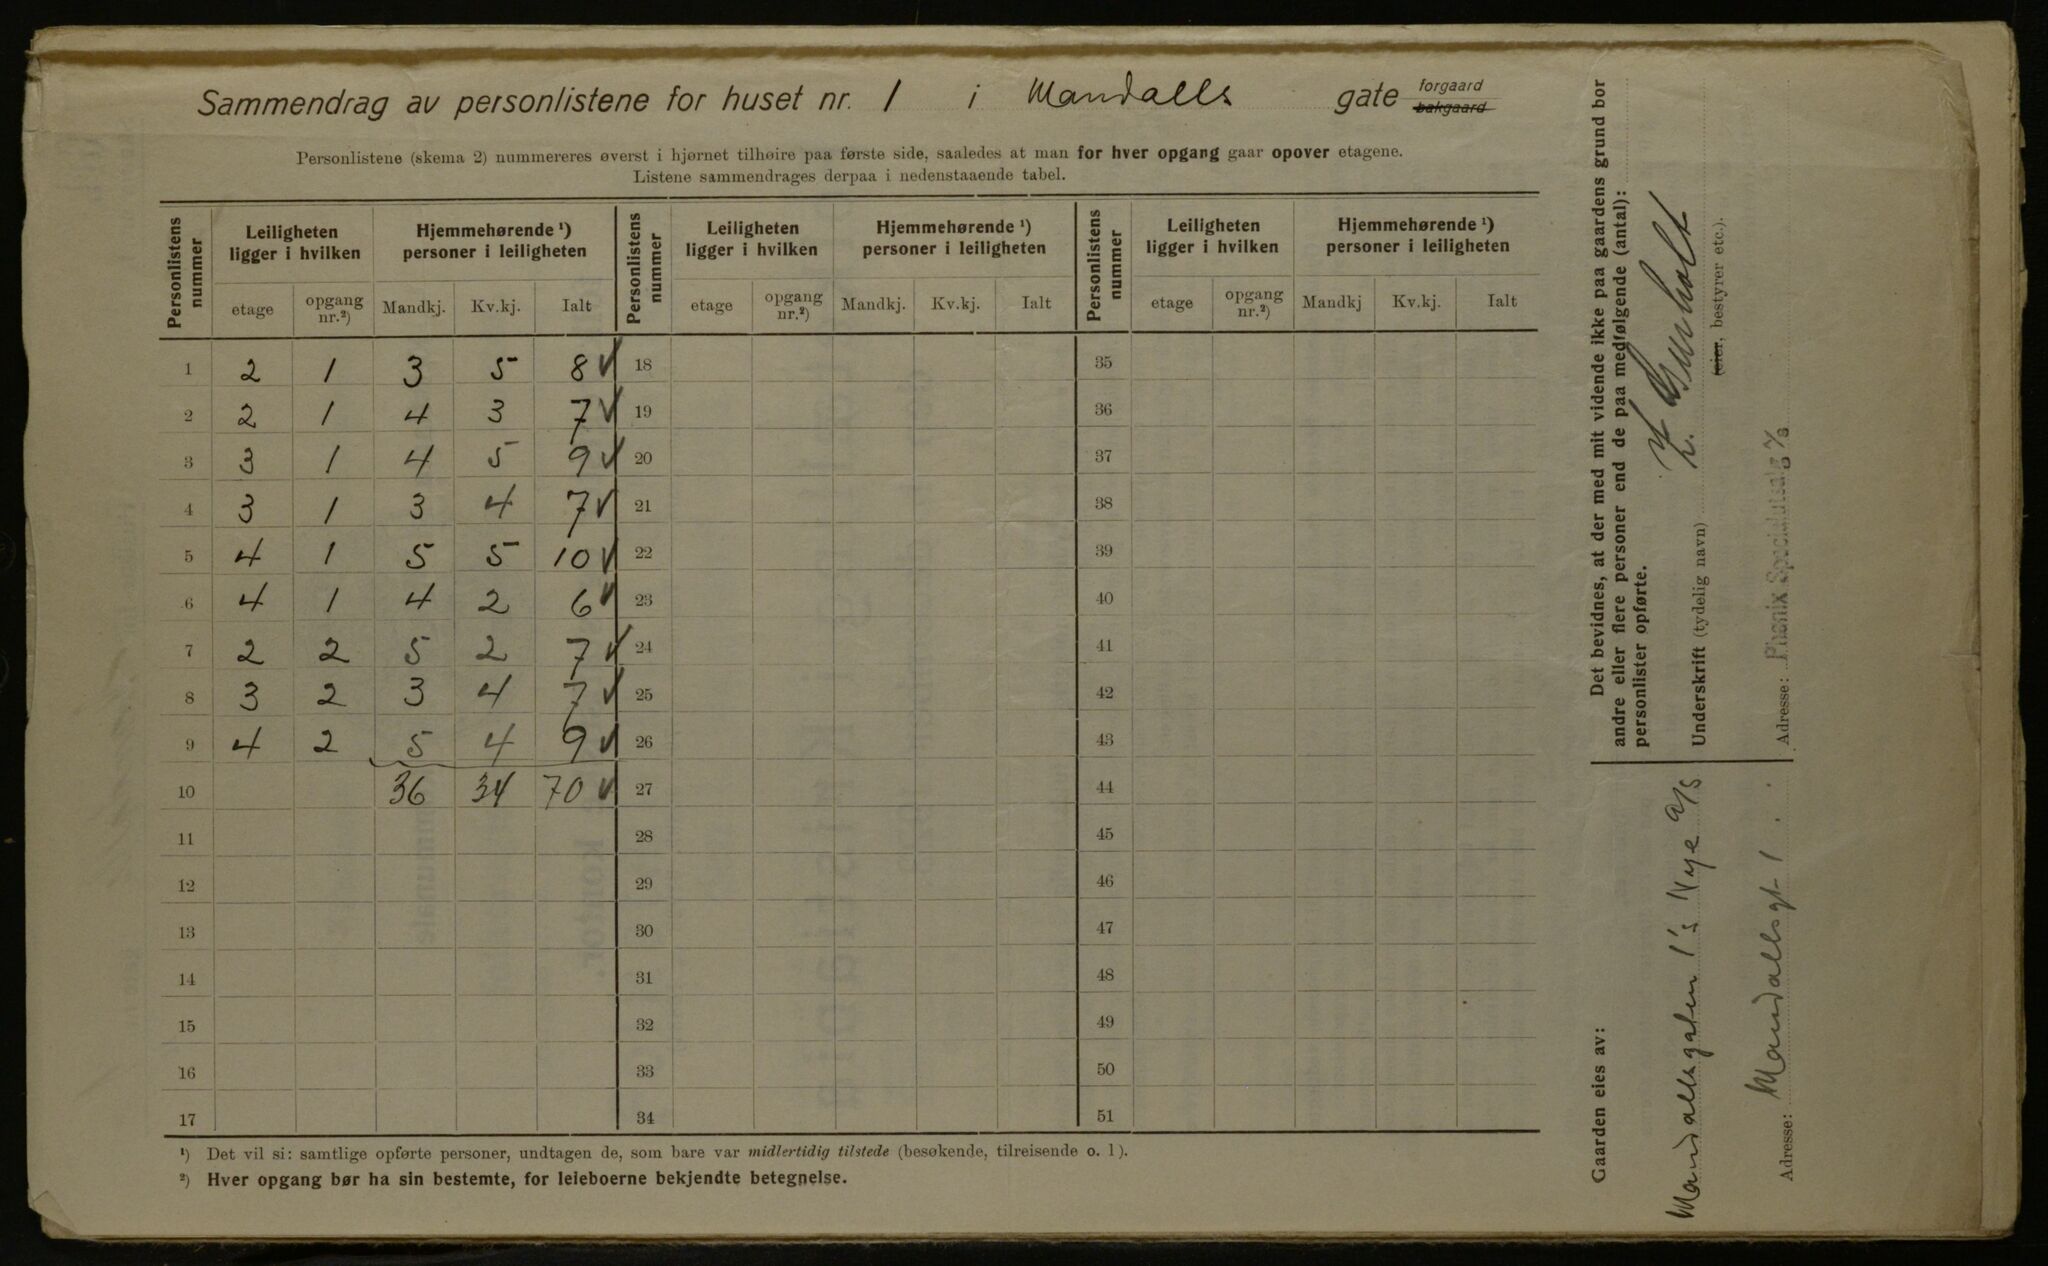 Sammendrag av personlistene for huset nr. 1 i Mandalls gate forgaard bakgaard
Personlistene (skema 2) nummereres øverst i hjørnet tilhøire paa første side, saaledes at man for hver opgang gaar opover etagene.
Listene sammendrages derpaa i nedenstaaende tabel.
Personlistens nummer Leiligheten ligger i hvilken Hjemmehørende ¹) personer i leiligheten Personlistens nummer Leiligheten ligger i hvilken Hjemmehørende ¹) personer i leiligheten Personlistens nummer Leiligheten ligger i hvilken Hjemmehørende ¹) personer i leiligheten
etage opgang nr.²) Mandkj. Kv.kj. Ialt etage opgang nr.²) Mandkj. Kv.kj. Ialt etage opgang nr.²) Mandkj Kv.kj. Ialt
1 2 1 3 5 8 ✓ 18 35
2 2 1 4 3 7 ✓ 19 36
3 3 1 4 5 9 ✓ 20 37
4 3 1 3 4 7 ✓ 21 38
5 4 1 5 5 10 ✓ 22 39
6 4 1 4 2 6 ✓ 23 40
7 2 2 5 2 7 ✓ 24 41
8 3 2 3 4 7 ✓ 25 42
9 4 2 5 4 9 ✓ 26 43
10 36 34 70 ✓ 27 44
11 28 45
12 29 46
13 30 47
14 31 48
15 32 49
16 33 50
17 34 51
¹) Det vil si: samtlige opførte personer, undtagen de, som bare var midlertidig tilstede (besøkende, tilreisende o. l).
²) Hver opgang bør ha sin bestemte, for leieboerne bekjendte betegnelse.
Det bevidnes, at der med mit vidende ikke paa gaardens grund bor
andre eller flere personer end de paa medfølgende (antal):
personlister opførte.
Underskrift (tydelig navn)
(eier, bestyrer etc.).
Adresse: Phønix Specialutsalg A/S
Gaarden eies av:
Mandallsgaten 1's Nye A/S
Adresse: Mandallsgt 1